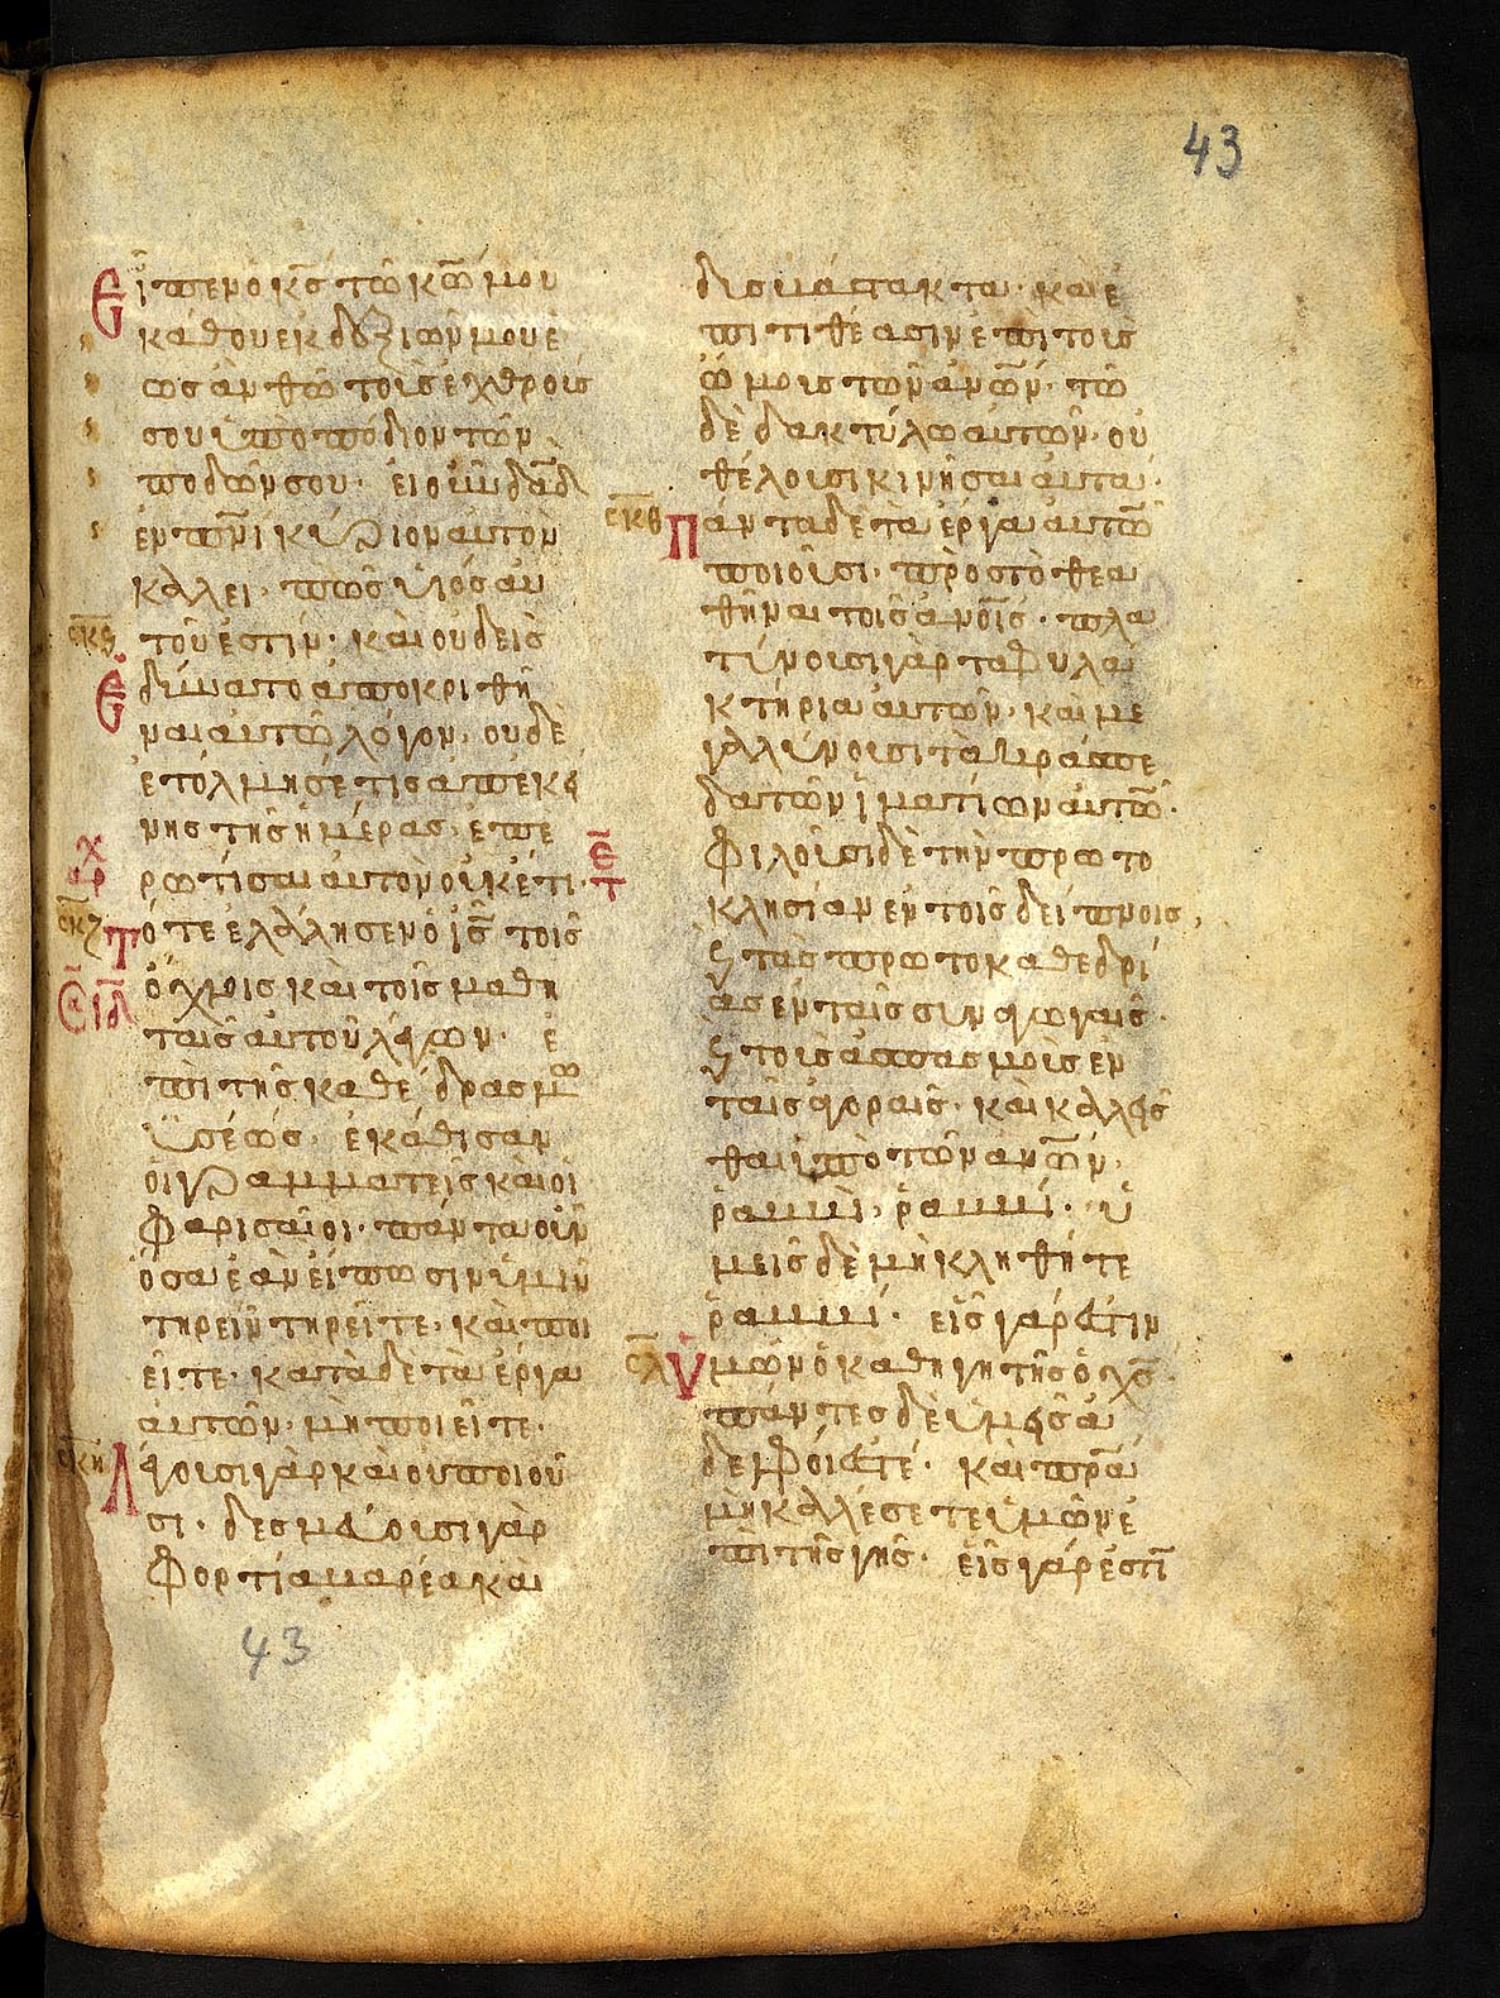 43
Εἶπεν ὁ κ̅ς̅ τῶ κ̅ω̅ μου
κάθου ἐκ δεξιῶν μου ἐ
ως ἀν θῶ τοὺς ἐχθρούς
σου ὑποπόδιον τῶν
ποδῶν σου· εἰ οὖν δα̅δ̅
ἐν πν̅ι̅ κύριον αυτὸν
καλεῖ· πῶς υἱὸς αυ
σκϛ τοῦ ἐστίν· καὶ οὐδεὶς
ἐδύνατο ἀποκριθῆ
ναι αὐτῶ λόγον· ουδὲ
ἐτόλμησέ τις απ εκεί
νης τῆς ἡμέρας· ἐπε
ρωτίσαι αὐτὸν οὐκέτι·
σκζ Τότε ἐλάλησεν ὁ ι̅ς̅ τοῖς
ὄχλοις καὶ τοῖς μαθη
ταῖς αὐτοῦ λέγων· ἐ
πὶ τῆς καθέδρας μω
ϋσέως· ἐκάθισαν
οἱ γραμματεῖς καὶ οἱ
Φαρισαῖοι· πάντα οὖν
ὅσα ἐὰν εἴπωσιν ὑμῖν
τηρεῖν τηρεῖτε· καὶ ποι
εῖτε· κατὰ δὲ τὰ ἔργα
αὐτῶν· μὴ ποιεῖτε·
σκη Λέγουσι γὰρ καὶ οὐ ποιοῦ
σι· δεσμεύουσι γὰρ
Φορτία βαρέα καὶ
43
δυσβάστακτα· καὶ ἐ
πιτιθέασιν ἐπὶ τοὺς
ὤμους τῶν ἀν̅ω̅ν· τῶ
δὲ δακτύλω αὐτῶν· οὐ
θέλουσι κινῆσαι αὐτά·
σκθ Πάντα δὲ τὰ ἔργα αὐτῶ̅
ποιοῦσι· πρὸς τὸ θεα
θῆναι τοῖς ἀν̅ο̅ις· πλα
τύνουσι γὰρ τὰ Φυλα
κτήρια αὐτῶν· καὶ με
γαλύνουσι τὰ κράσπε
δα τῶν ἱματίων αὐτῶ̅·
Φιλοῦσι δὲ τὴν πρωτο
κλησίαν ἐν τοῖς δείπνοις,
ϗ τὰς πρωτοκαθεδρί
ας ἐν ταῖς συναγωγαῖς·
ϗ τοὺς ἀσπασμοὺς ἐν
ταῖς ἀγοραῖς· καὶ καλεῖσ
θαι ὑπὸ τῶν ἀν̅ω̅ν·
ῥαββὶ, ῥαββί· ὑ
μεῖς δὲ μὴ κληθῆτε
ῥαββί· εἷς γάρ ἐστιν
σλ Ὑμῶν ὁ καθηγητῆς ὁ χ̅ς̅·
πάντες δὲ ὑμεῖς ἀ
δελΦοί ἐστέ· καὶ πρ̅α̅
μὴ καλέσετε ὑμῶν ἐ
πὶ τῆς γῆς· εἷς γάρ ἐστι̅